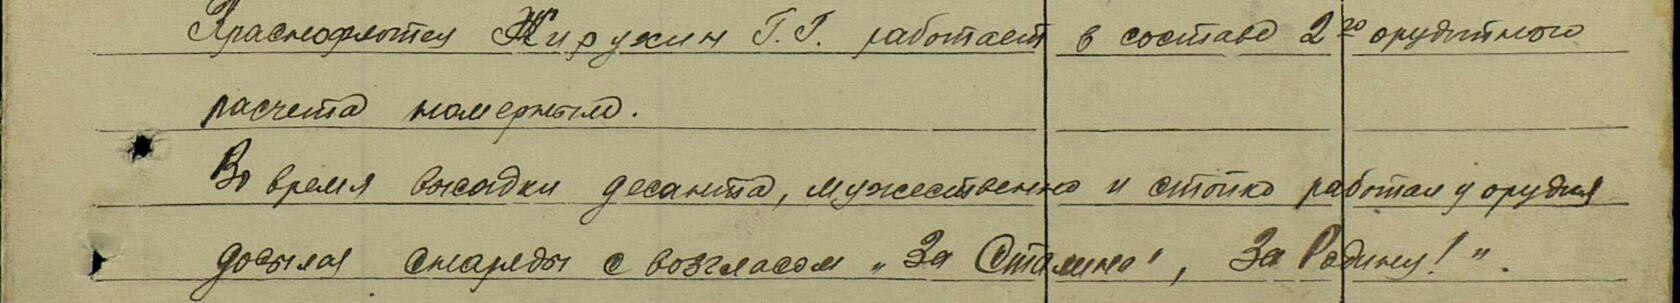 Краснофлотец Жирухин Г.Г. работает в составе 2го орудийного
расчета номерным.
Во время высадки десанта, мужественно и стойко работал у орудия
досылая снаряды с возгласом „За Сталина", За Родину!".